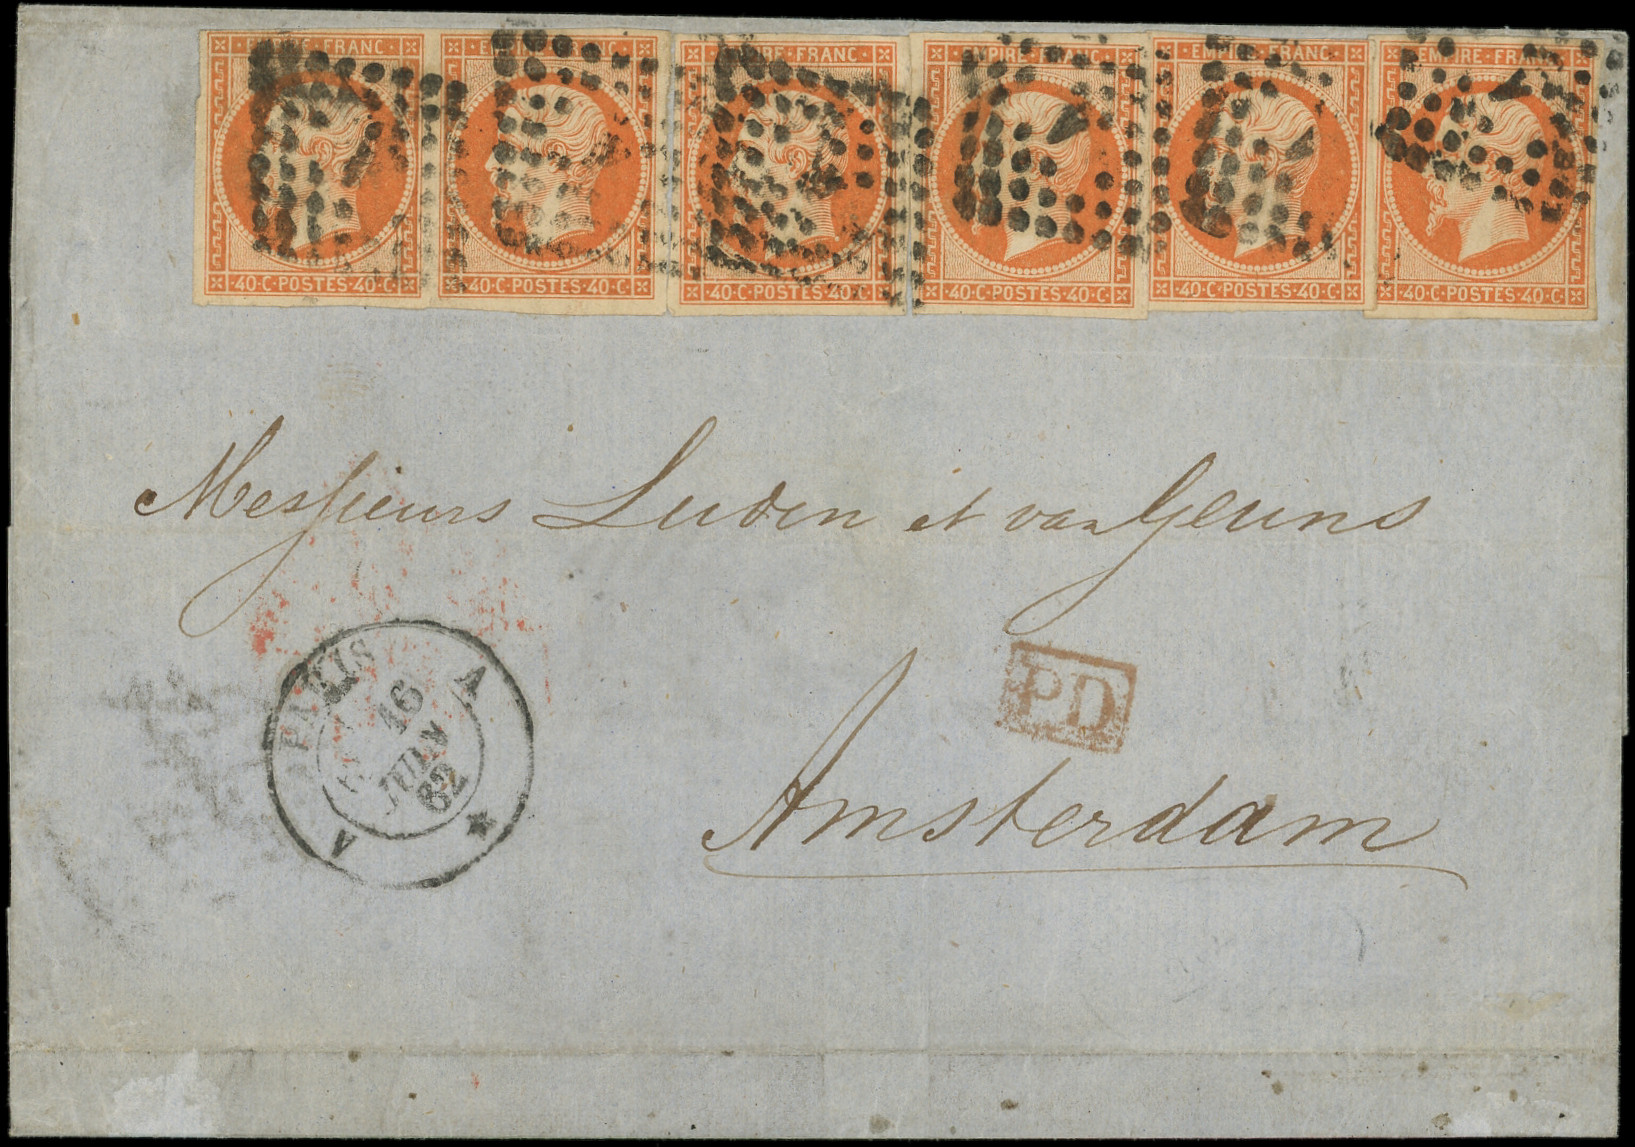 EMPIRE·FRANC· EMPIRE·FRANC· EMPIRE·FRANC· EMPIRE·FRANC· EMPIRE·FRANC· EMPIRE·FRANC·
·40·C·POSTES·40·C· ·40·C·POSTES·40·C· ·40·C·POSTES·40·C· ·40·C·POSTES·40·C· ·40·C·POSTES·40·C· ·40·C·POSTES·40·C·
Messieurs Luden et van Geuns
PD
Amsterdam
PARIS A
16
JUIN
62
A